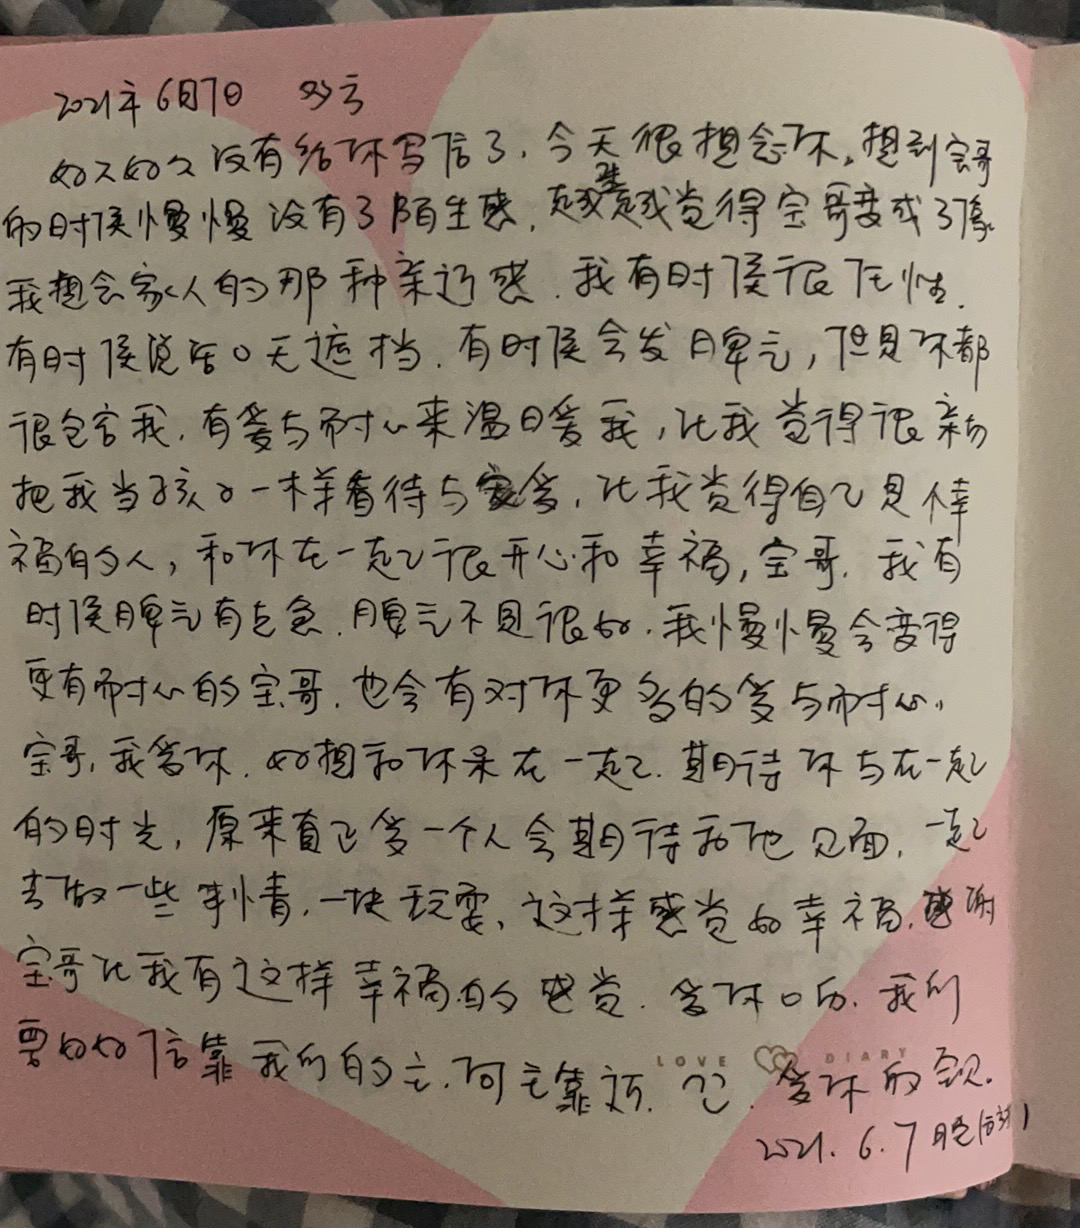 2021年6月7日 多云
好久好久没有给你写信了，今天很想念你，想到宝哥
的时候慢慢没有了陌生感，越来越觉得宝哥变成了像
我想念家人的那种亲近感．我有时候很任性．
有时候说话口无遮挡．有时候会发脾气，但是你都
很包容我．有爱与耐心来温暖我，让我觉得很亲切
把我当孩子一样看待与爱，让我觉得自己是幸
福的人，和你在一起很开心和幸福，宝哥．我有
时候脾气有点急．脾气不是很好．我慢慢会变得
更有耐心的宝哥．也会有对你更多的爱与耐心．
宝哥，我爱你．好想和你呆在一起．期待你与在一起
的时光，原来真正爱一个人会期待和他见面．一起
去做一些事情．一块玩耍．这样感觉好幸福．感谢
宝哥让我有这样幸福的感觉．爱你口历．我们
要好好信靠我们的主．向主靠近．爱你的颖．
LOVE DIARY
2021．6．7 晚